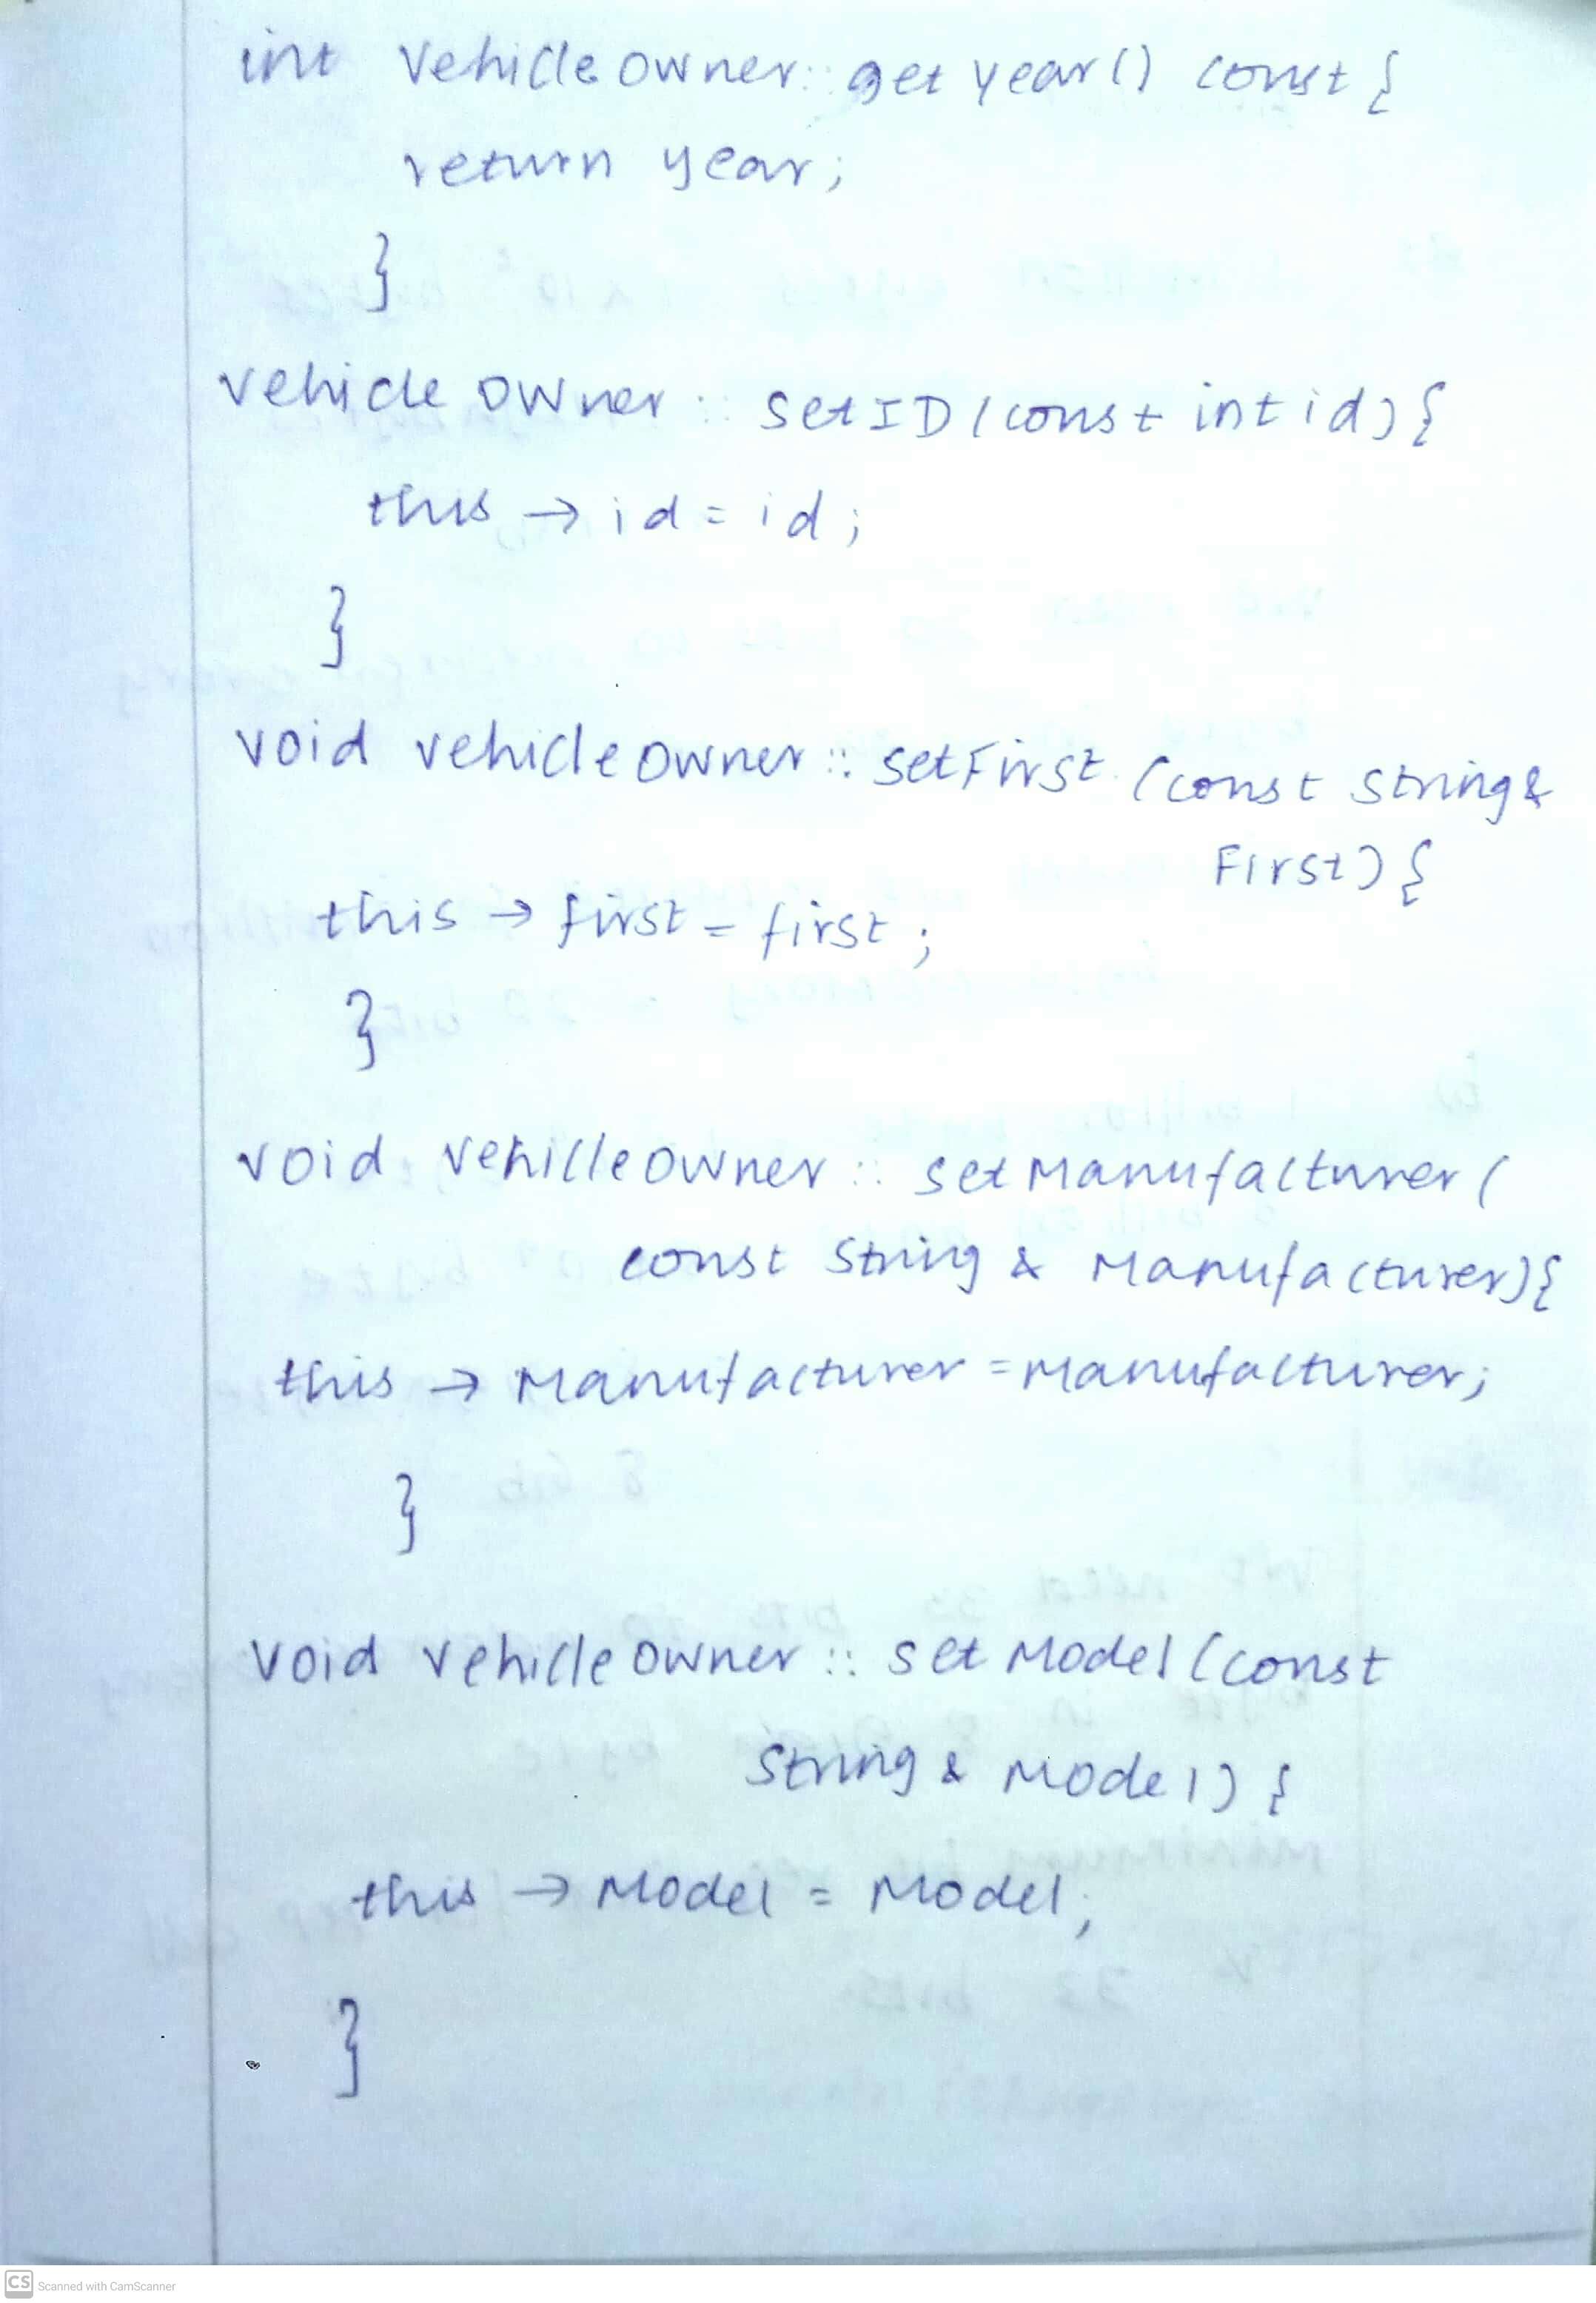 int Vehicle Owner :: get year() const {
return year;
}
vehicle Owner :: Set ID (const int id) {
this → id = id;
}
void vehicle Owner :: set First (const String &
First) {
this → first = first ;
}
void vehicle Owner :: set Manufacturer (
const String & Manufacturer) {
this → Manufacturer = Manufacturer;
}
void vehicle Owner :: set Model (const
String & Model) {
this → Model = Model;
}
CS Scanned with CamScanner